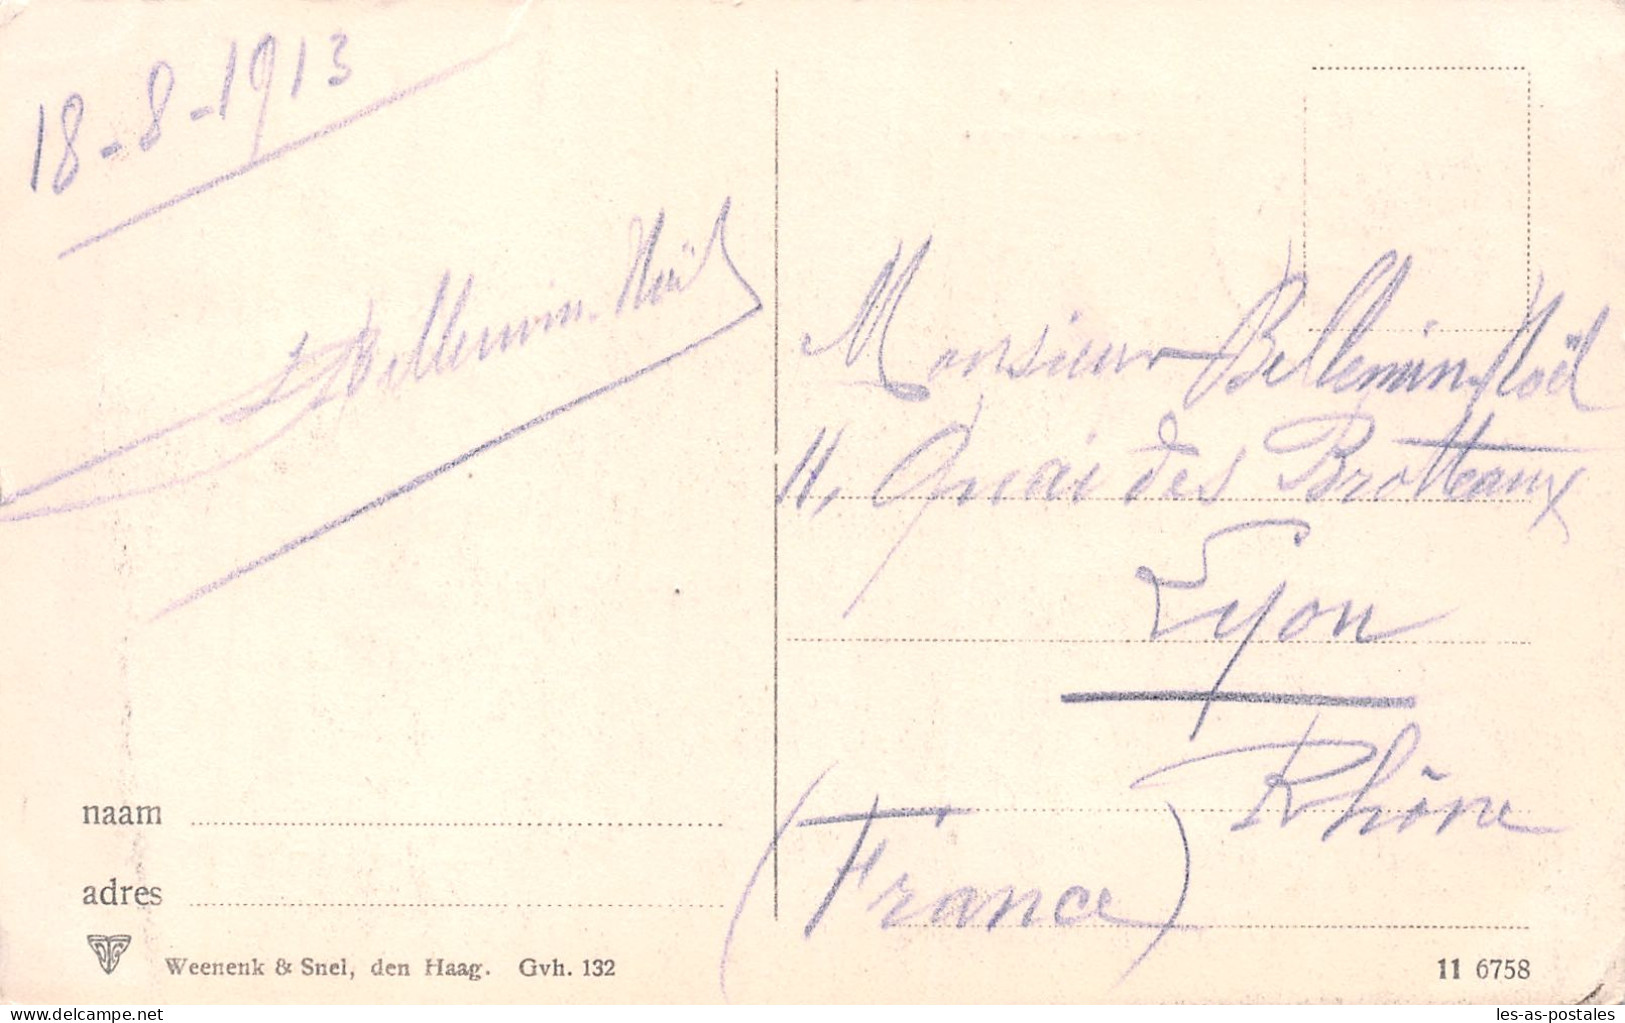 18-8-1913
L Bellemin-Noël
Monsieur Bellemin-Noël
11, Quai des Brotteaux
Lyon
Rhône
(France)
naam
adres
Weenenk & Snel, den Haag. Gvh. 132
11 6758
les-as-postales